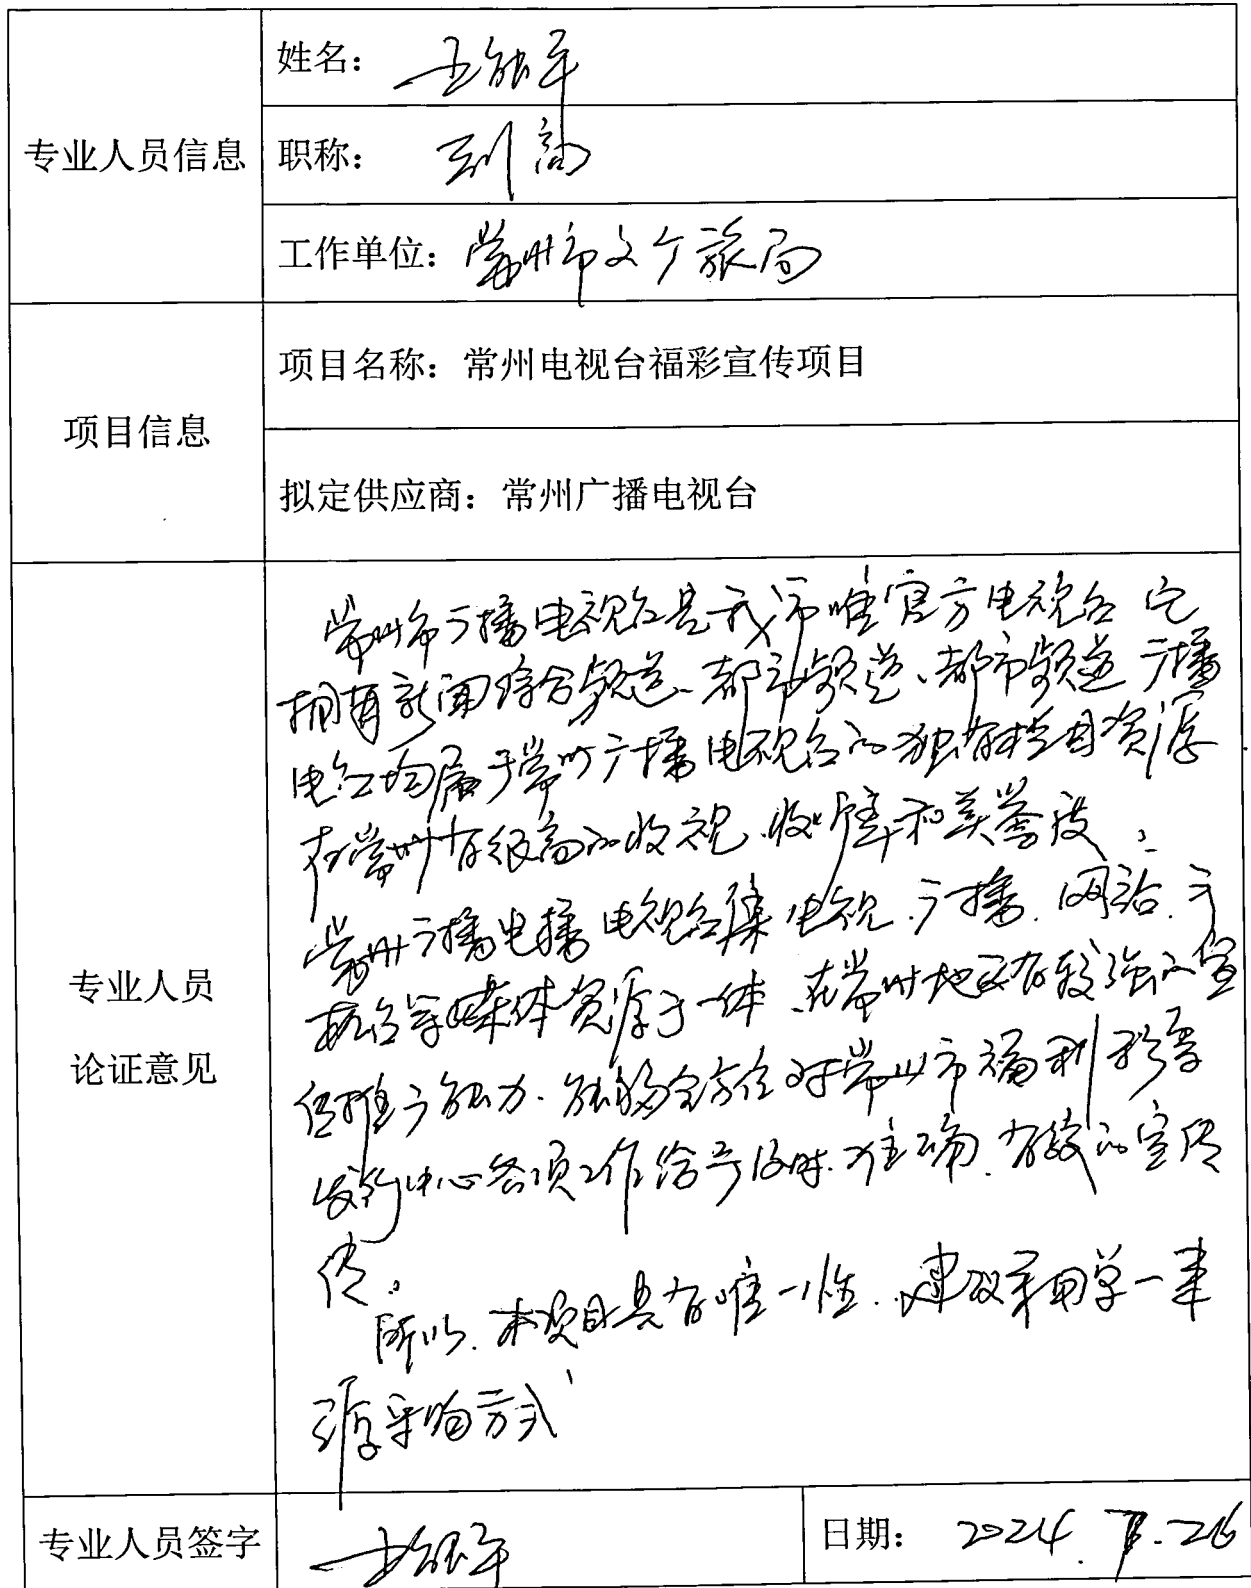 专业人员信息
姓名：王能平
职称：副高
工作单位：常州市文广旅局
项目信息
项目名称：常州电视台福彩宣传项目
拟定供应商：常州广播电视台
专业人员
论证意见
常州市广播电视台是我市唯官方电视台 它
拥有新闻综合频道、都市频道、都市频道 广播
电台均属于常州广播电视台的独有栏目资源
在常州有很高的收视、收听率和美誉度，
常州广播电播电视台集电视、广播、网站、
等媒体资源于一体、在常州地区有较强的宣
传推广能力、能够全方位对常州市福利彩票
发行中心各项工作给予及时、准确、有效的宣传
传。
所以、本项目具有唯一性、建议采用单一来
源采购方式
专业人员签字
王能平
日期：2024.